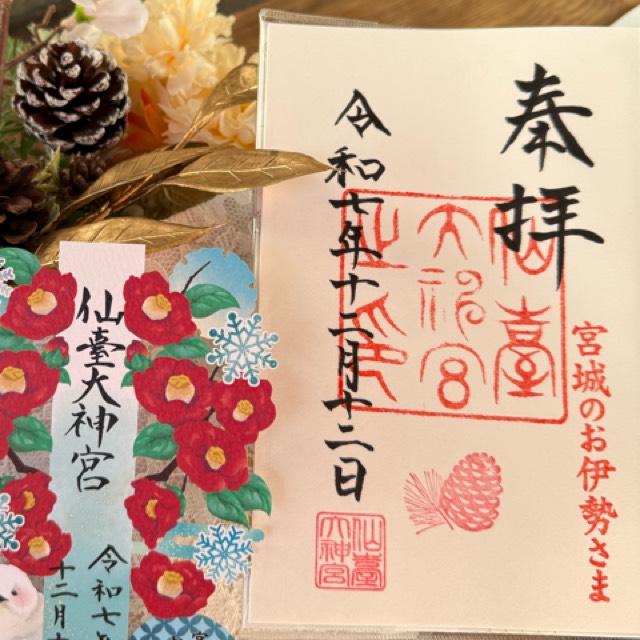 奉拝
宮城のお伊勢さま
仙臺
大神宮
之印
令和七年十二月十二日
仙臺
大神宮
仙臺大神宮
令和七
十二月